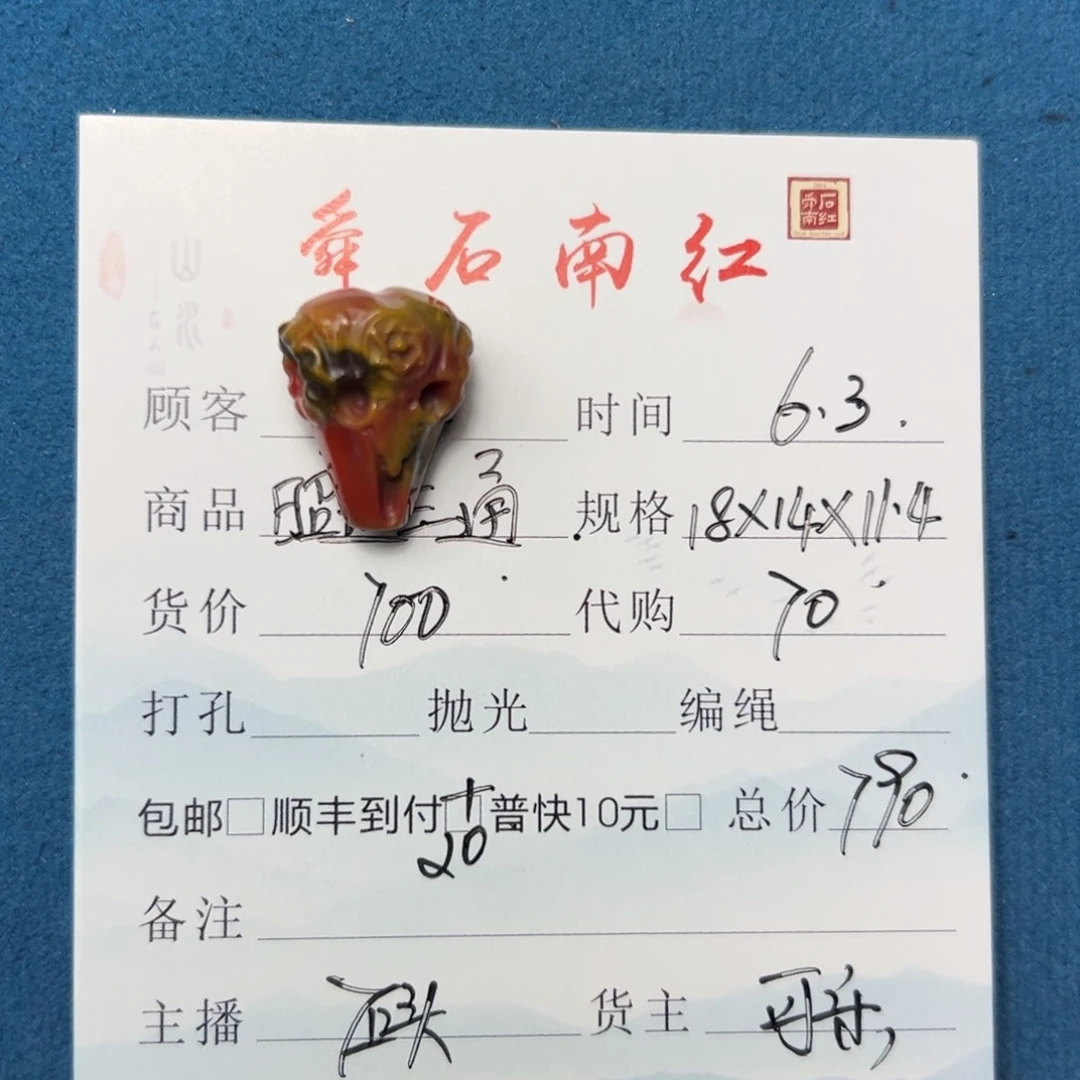 舜石南红
舜石
南红
顾客 时间 6.3.
商品 三通 规格 18X14X11.4
货价 700 代购 70
打孔 抛光 编绳
包邮□顺丰到付□+20 普快10元□ 总价 790
备注
主播 货主